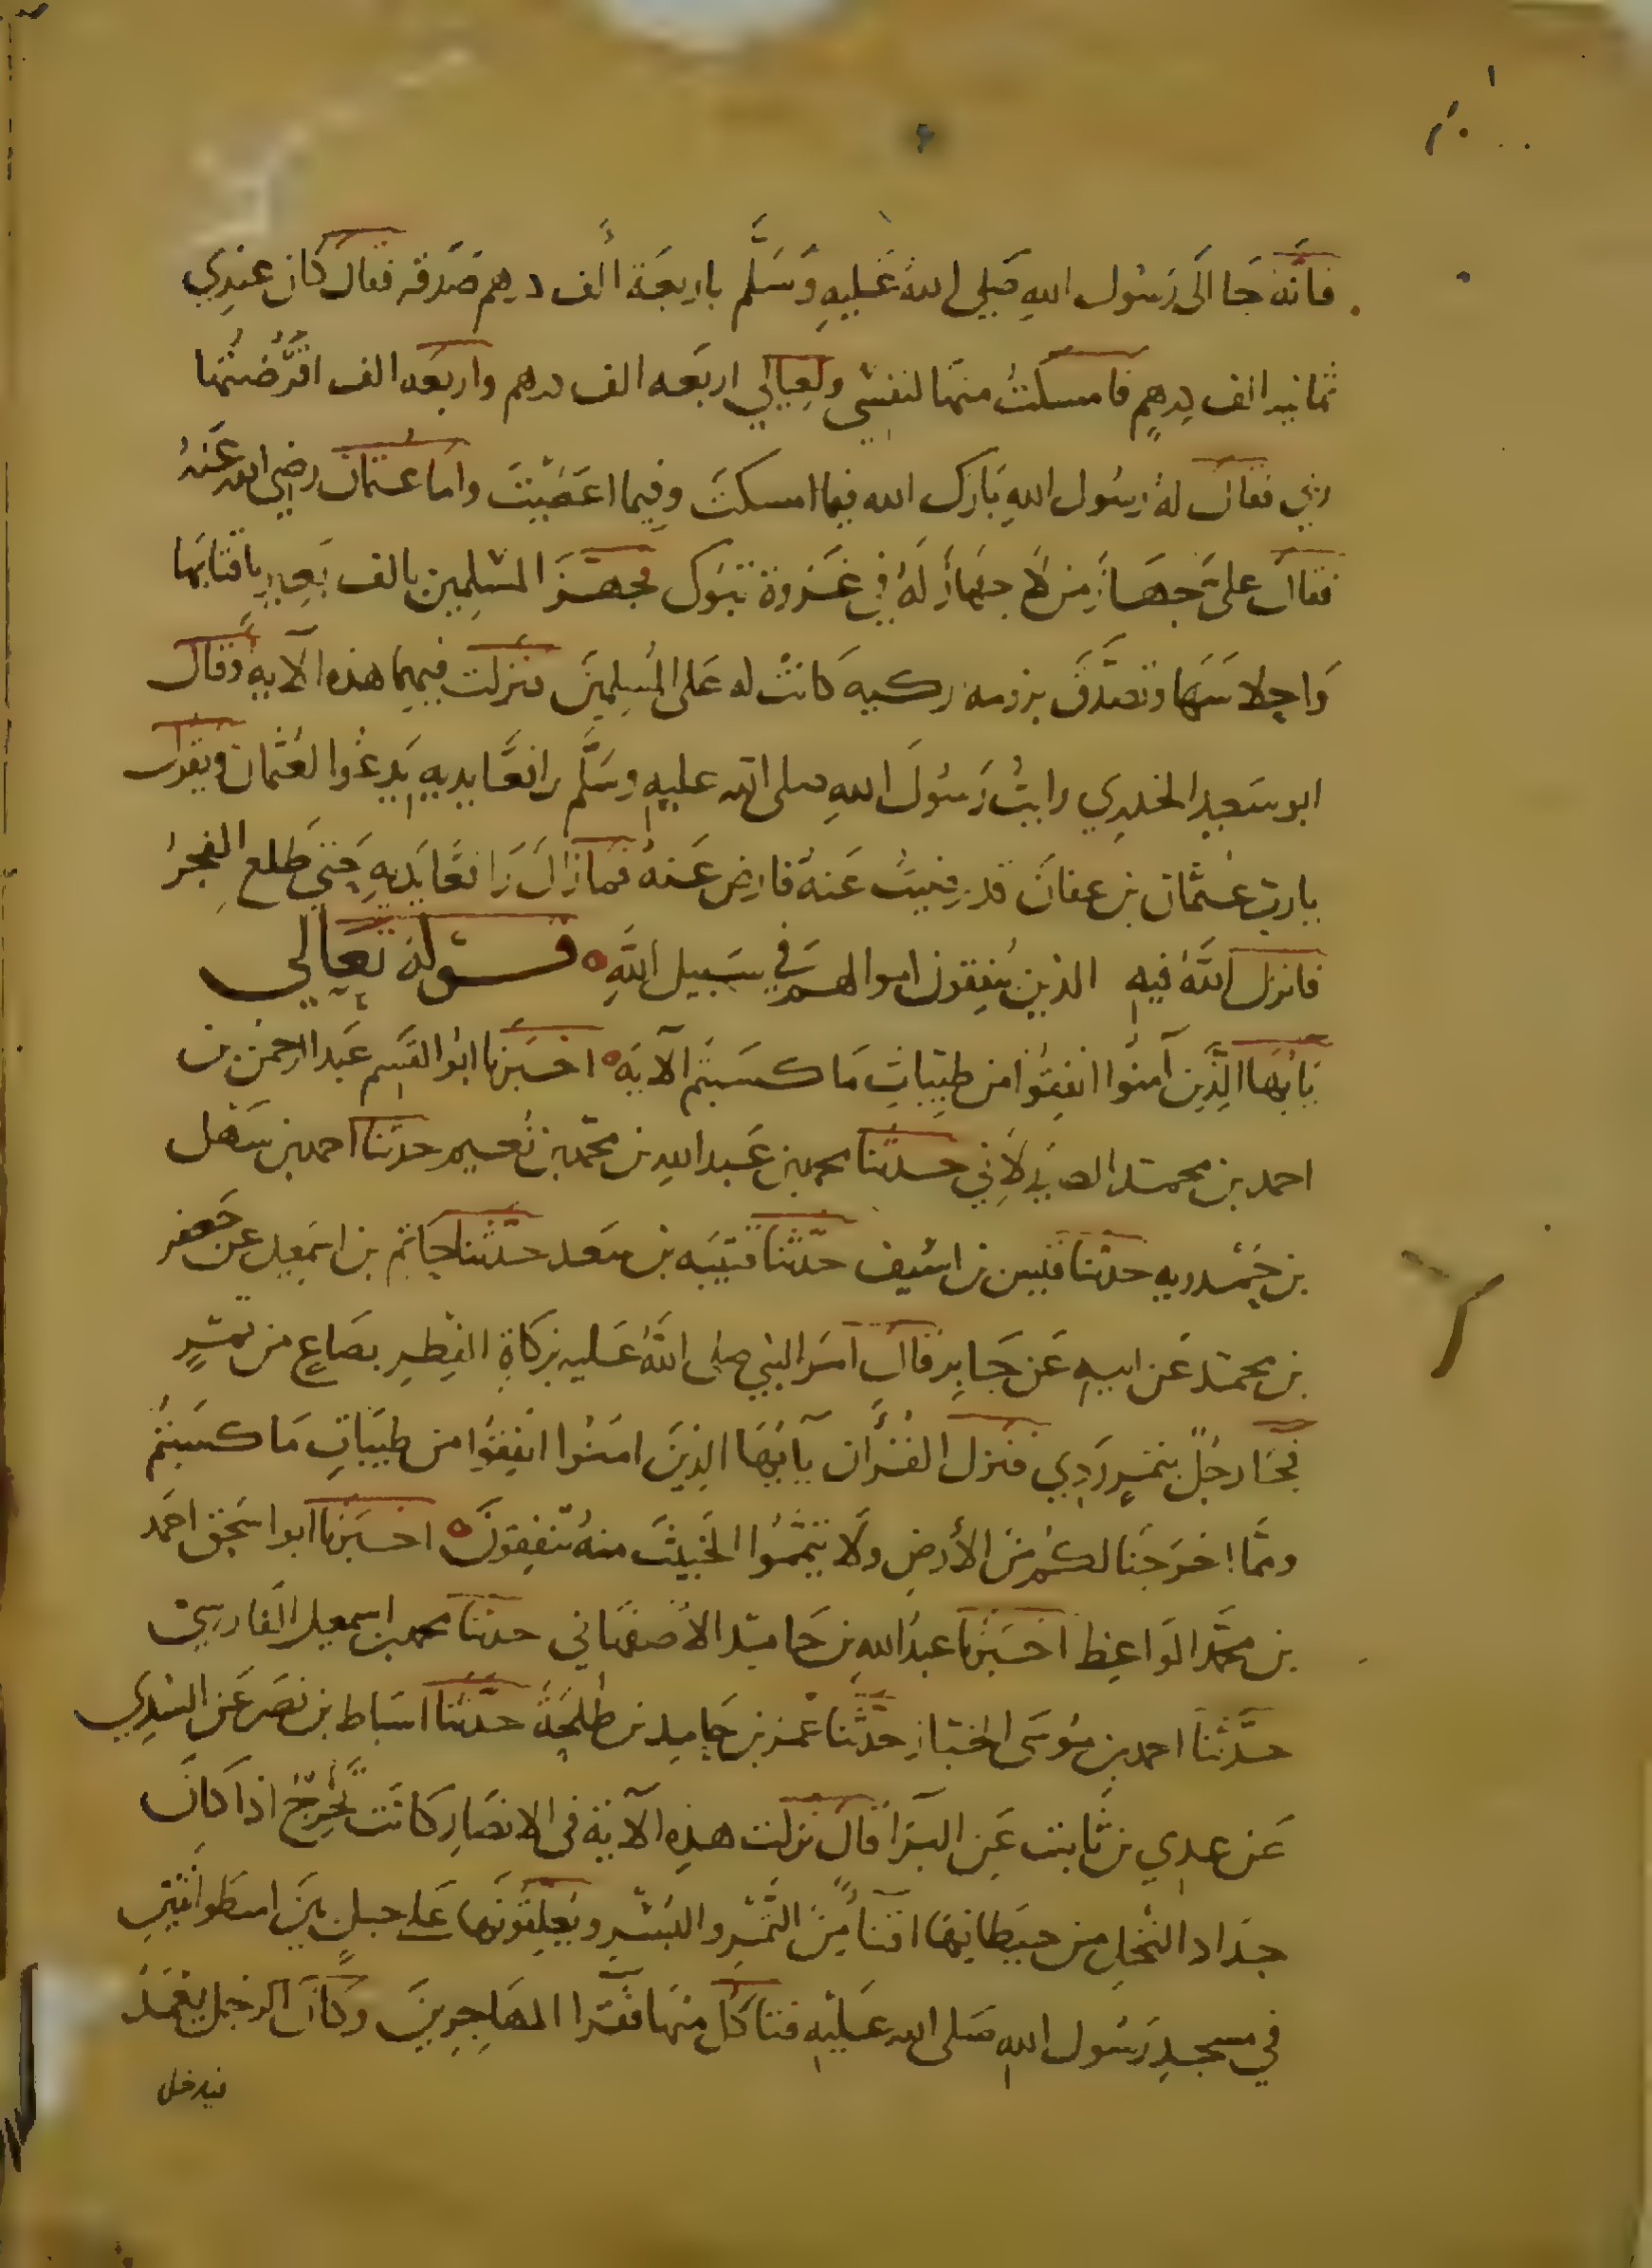 فانه جا الى رسول الله صلى الله عليه وسلم باربعة الف درهم صدقه فقال كان عندي
ثمانيه الف درهم فامسكت منها لنفسي ولعيالي اربعه الف درهم واربعه الف اقرضتها
ربي فقال له رسول الله بارك الله فيما امسكت وفيما اعطيت واما عثمان رضي الله عنه
فقال على جهاز من لا جهاز له في غزوة تبوك فجهز المسلمين بالف بعير باقتابها
واحلاسها وتصدق برومه ركيه كانت له على المسلمين فنزلت فيهما هذه الآيه وقال
ابو سعيد الخدري رايت رسول الله صلى الله عليه وسلم رافعا يديه يدعوا لعثمان ويقول
يارب عثمان بن عفان قد رضيت عنه فارض عنه فما زال رافعا يديه حتى طلع الفجر
فانزل الله فيه الذين ينفقون اموالهم في سبيل الله ه قوله تعالي
يايها الذين آمنوا انفقوا من طيبات ما كسبتم الآيه ه اخبرنا ابو القسم عبد الرحمن بن
احمد بن محمد الصيدلاني حدثنا محمد بن عبد الله بن محمد بن نعيم حدثنا احمد بن سهل
بن حمدويه حدثنا قيس بن اسيف حدثنا قتيبه بن سعد حدثنا حاتم بن اسمعيل عن جعفر
بن محمد عن ابيه عن جابر قال امر النبي صلى الله عليه بزكاة الفطر بصاع من تمر
فجا رجل بتمر ردي فنزل القرآن يآيها الذين امنوا انفقوا من طيبات ما كسبتم
ومما اخرجنا لكم من الأرض ولا تيمموا الخبيث منه تنفقون ه اخبرنا ابو اسحق احمد
بن محمد الواعظ اخبرنا عبد الله بن حامد الاصفهاني حدثنا محمد بن اسمعيل الفارسي
حدثنا احمد بن موسى الخباز حدثنا عمر بن حامد بن طلحة حدثنا اسباط بن نصر عن السدي
عن عدي بن ثابت عن البرا قال نزلت هذه الآية في الانصار كانت تخرج اذا كان
جداد النخل من حيطانها اقنآ من التمر والبسر ويعلقونها على حبل بين اسطوانتين
في مسجد رسول الله صلى الله عليه فتاكل منها فقرا المهاجرين وكان الرجل يعمد
فيدخل